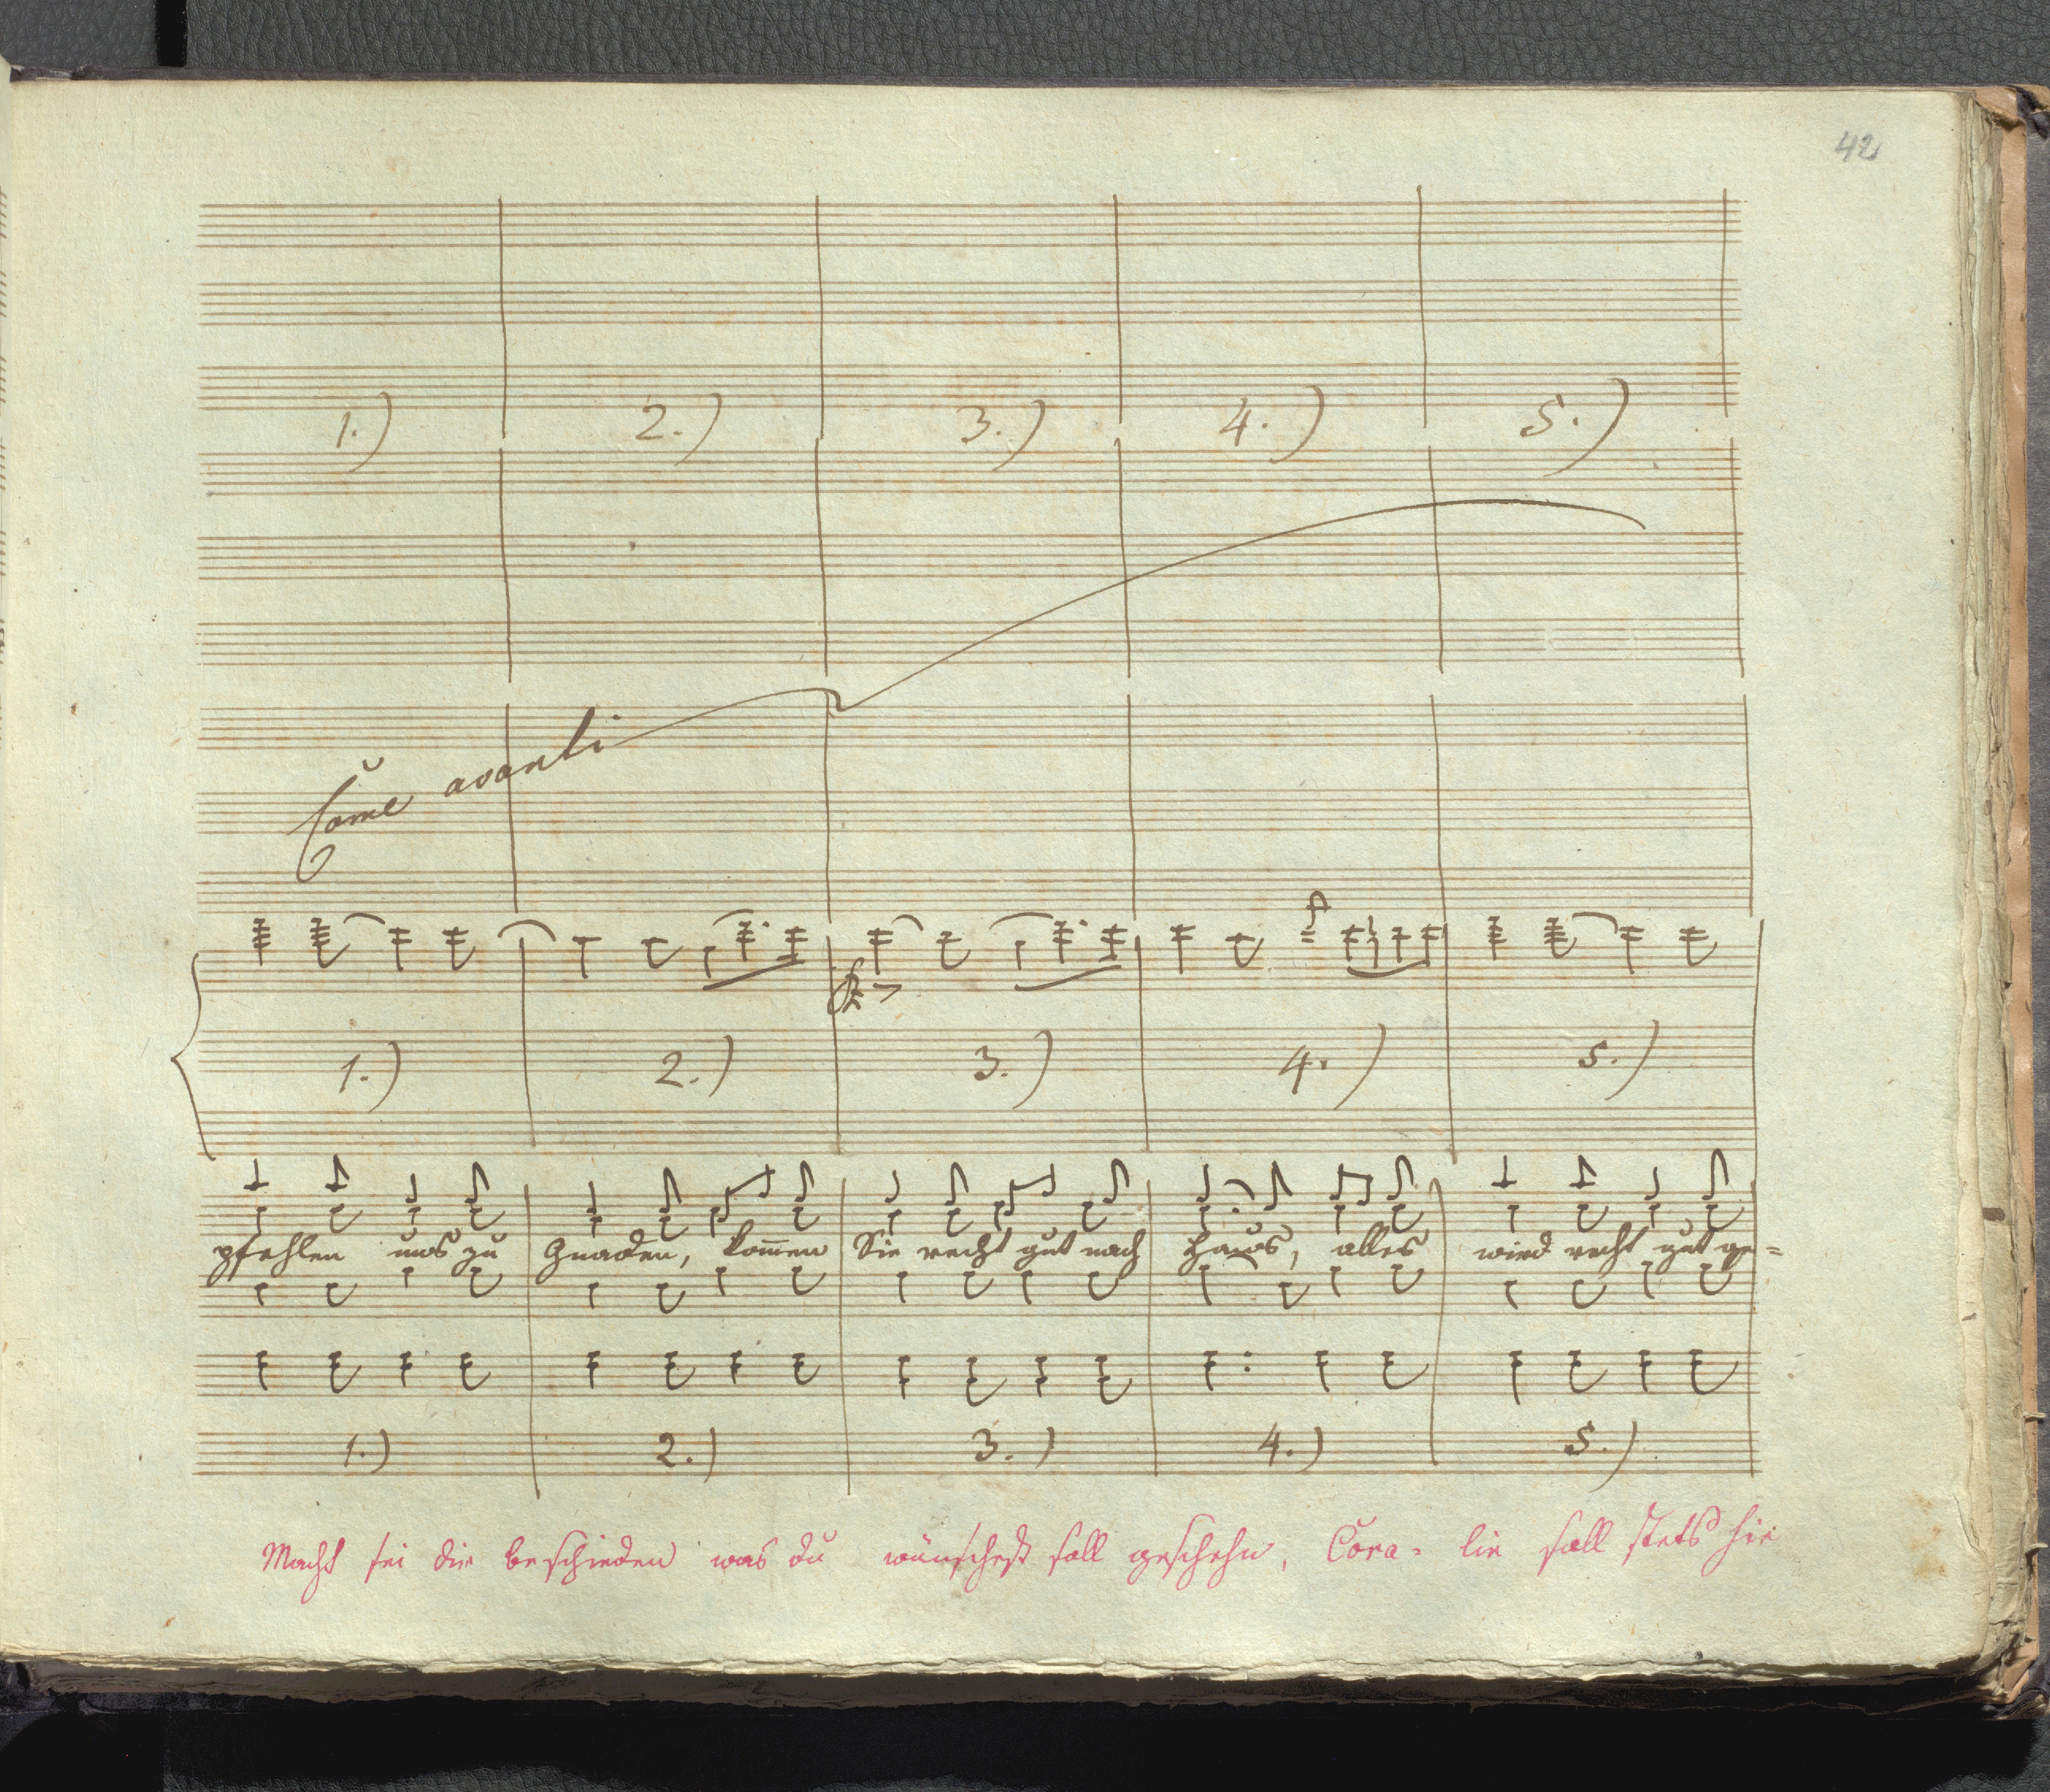 42
1.) 2.) 3.) 4.) 5.)
Come avanti
1.) 2.) 3.) 4.) 5.)
pfehlen uns zu Gnaden, kom̄en Sie recht gut nach Haus, alles wird recht gut ge=
1.) 2.) 3.) 4.) 5.)
Macht sei dir beschieden was du wünschest soll geschehn, Cora= lie soll stets hie